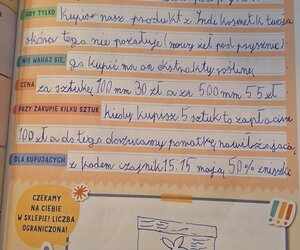 GDY TYLKO kupisz nasz produkt z Indi kosmetk twoja
skóra tego nie pożałuje (nowy żel pod prysznic)
NIE WAHAJ SIĘ, go kupić ma on ekstrakty roślinne
CENA za sztukę 100 mm 30 zł a za 500 mm 55 zł.
PRZY ZAKUPIE KILKU SZTUK kiedy kupisz 5 sztuk to zapłacisz
100 zł a do tego dorzucamy pomatkę nawilżającą
DLA KUPUJĄCYCH z kodem czajnik 15.15 mają 50% zniżki
CZEKAMY
NA CIEBIE
W SKLEPIE! LICZBA
OGRANICZONA!